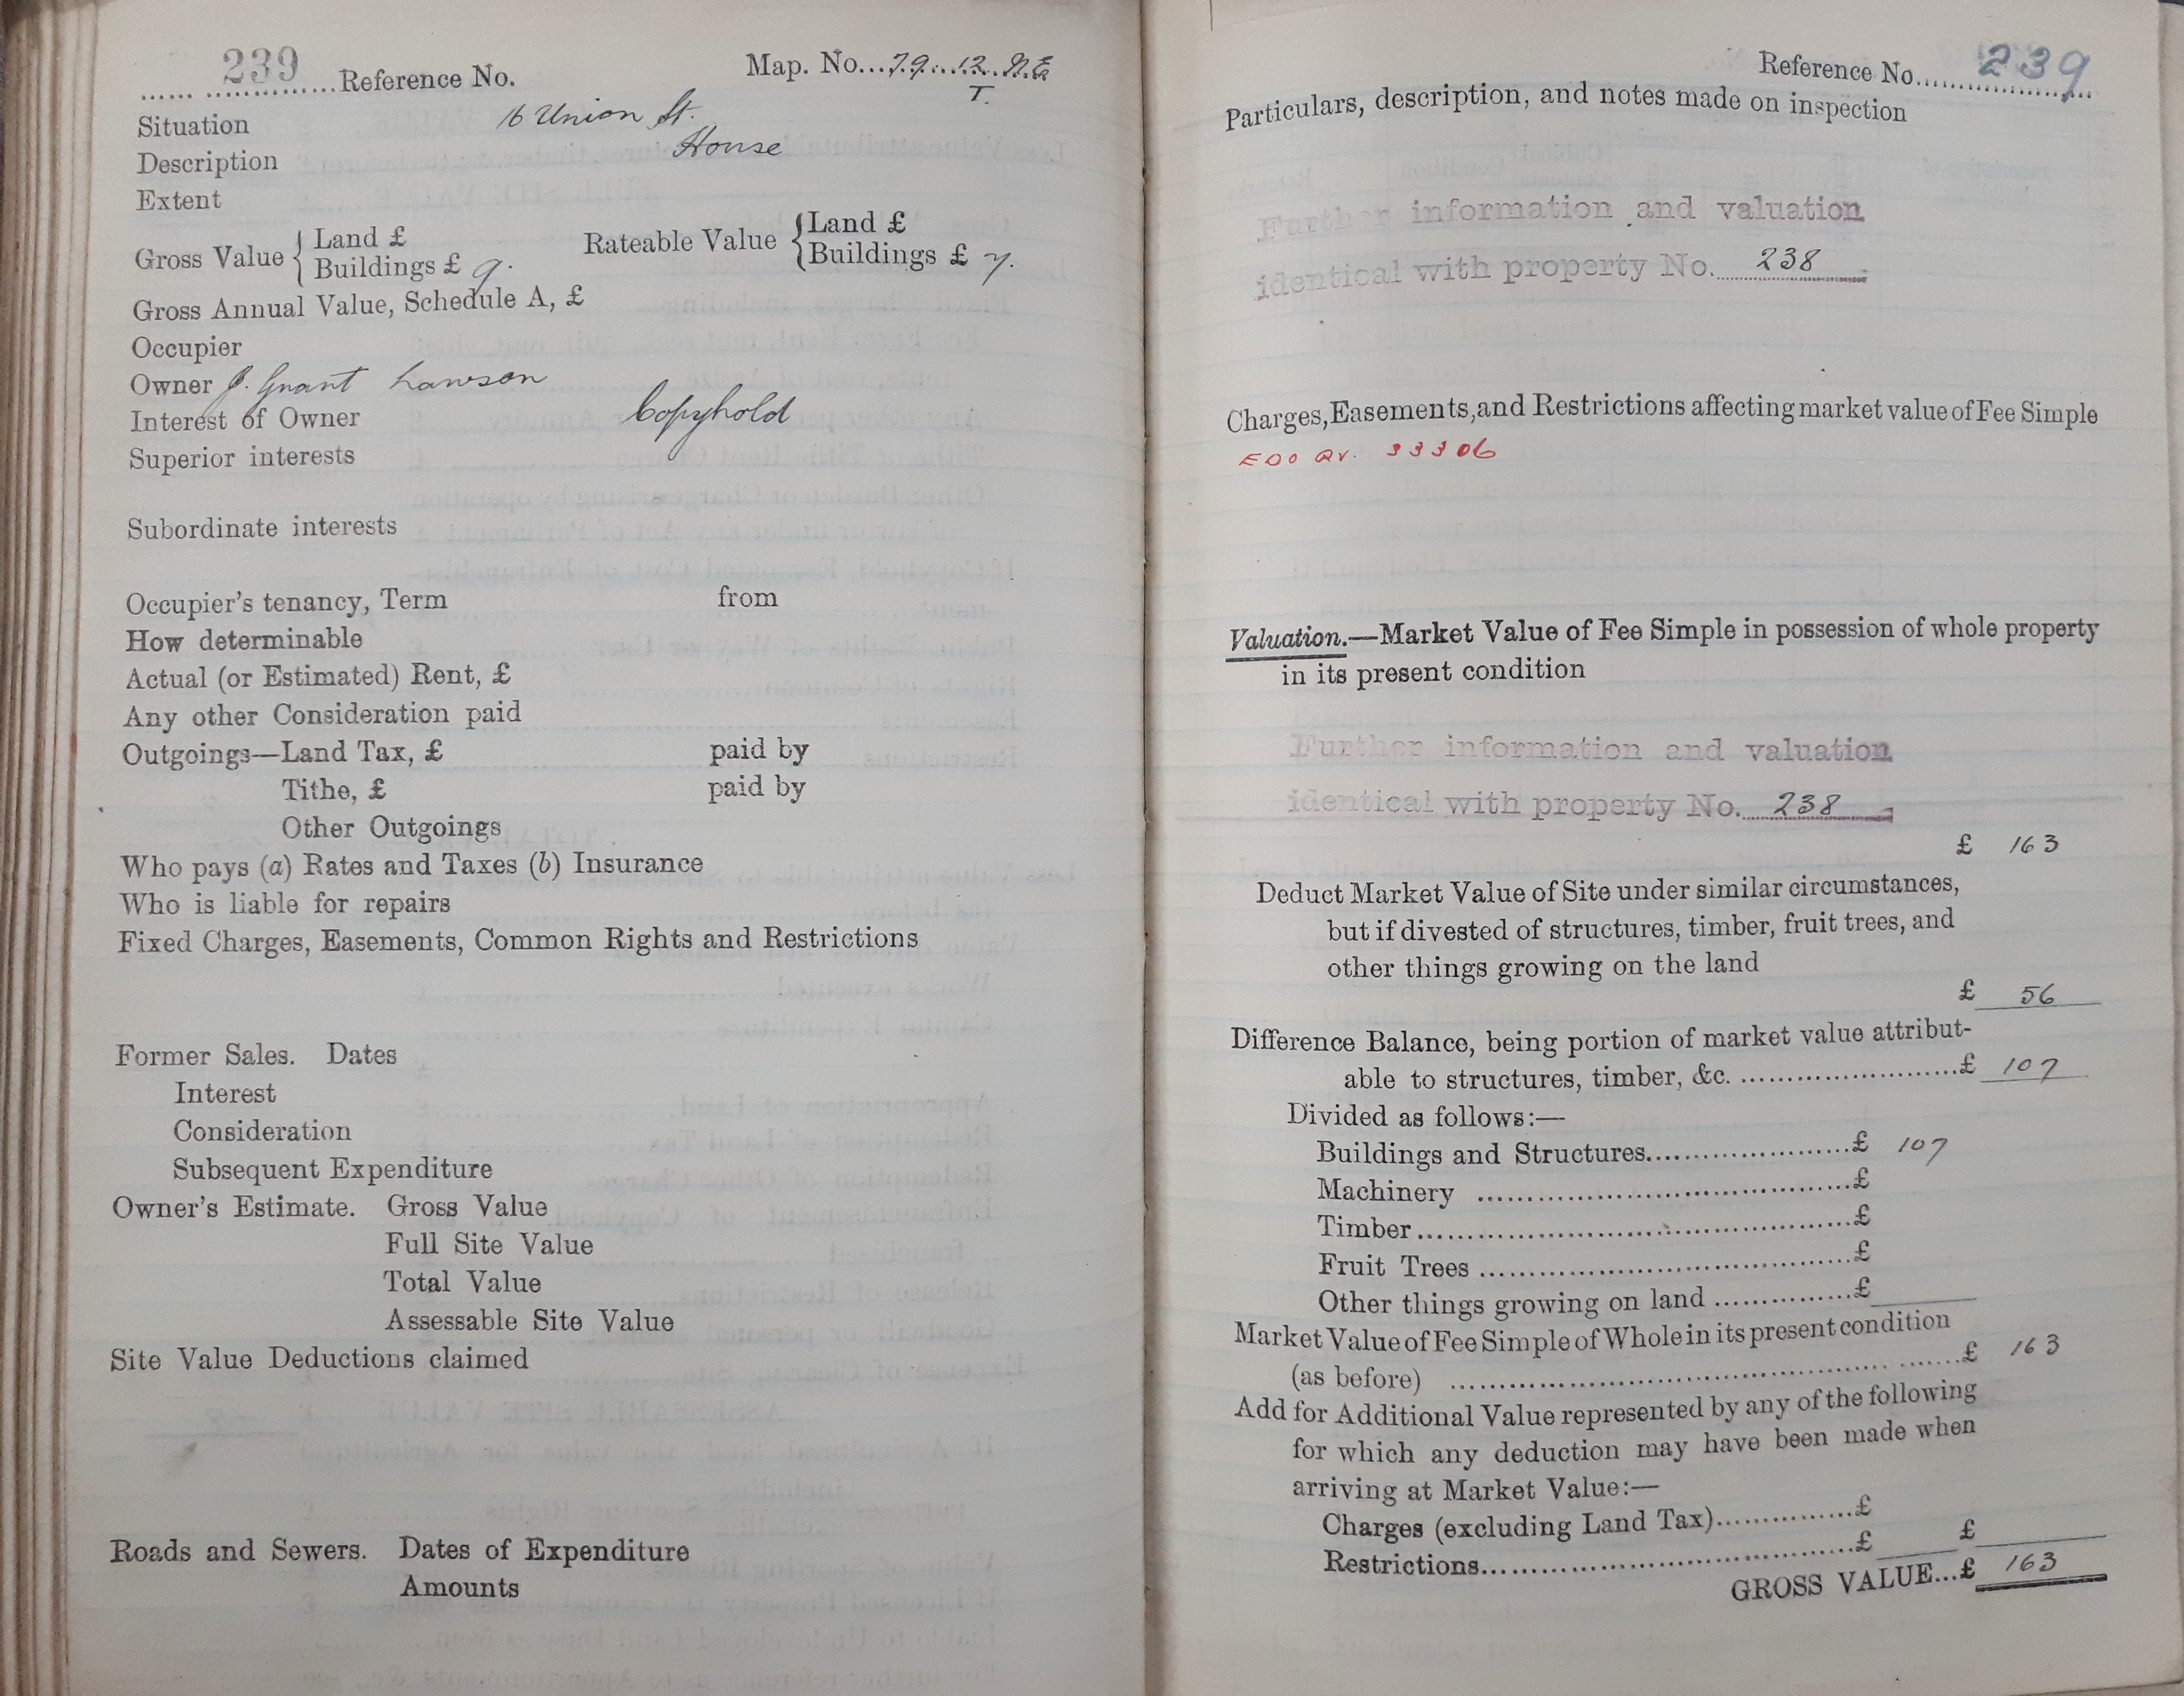 239 Reference No.
Map. No...79..12.N.E
T.
Situation 16 Union St.
Description House
Extent
Gross Value { Land £
Buildings £ 9.
Rateable Value { Land £
Buildings £ 7.
Gross Annual Value, Schedule A, £
Occupier
Owner J. Grant Lawson
Interest of Owner Copyhold
Superior interests
Subordinate interests
Occupier's tenancy, Term from
How determinable
Actual (or Estimated) Rent, £
Any other Consideration paid
Outgoings—Land Tax, £ paid by
Tithe, £ paid by
Other Outgoings
Who pays (a) Rates and Taxes (b) Insurance
Who is liable for repairs
Fixed Charges, Easements, Common Rights and Restrictions
Former Sales. Dates
Interest
Consideration
Subsequent Expenditure
Owner's Estimate. Gross Value
Full Site Value
Total Value
Assessable Site Value
Site Value Deductions claimed
Roads and Sewers. Dates of Expenditure
Amounts
Reference No. 239
Particulars, description, and notes made on inspection
Further information and valuation
identical with property No. 238
Charges, Easements, and Restrictions affecting market value of Fee Simple
33306
Valuation.—Market Value of Fee Simple in possession of whole property
in its present condition
Further information and valuation
identical with property No. 238
£ 163
Deduct Market Value of Site under similar circumstances,
but if divested of structures, timber, fruit trees, and
other things growing on the land
£ 56
Difference Balance, being portion of market value attribut-
able to structures, timber, &c. £ 107
Divided as follows:—
Buildings and Structures £ 107
Machinery £
Timber £
Fruit Trees £
Other things growing on land £
Market Value of Fee Simple of Whole in its present condition
(as before) £ 163
Add for Additional Value represented by any of the following
for which any deduction may have been made when
arriving at Market Value:—
Charges (excluding Land Tax) £
Restrictions £ £
GROSS VALUE...£ 163